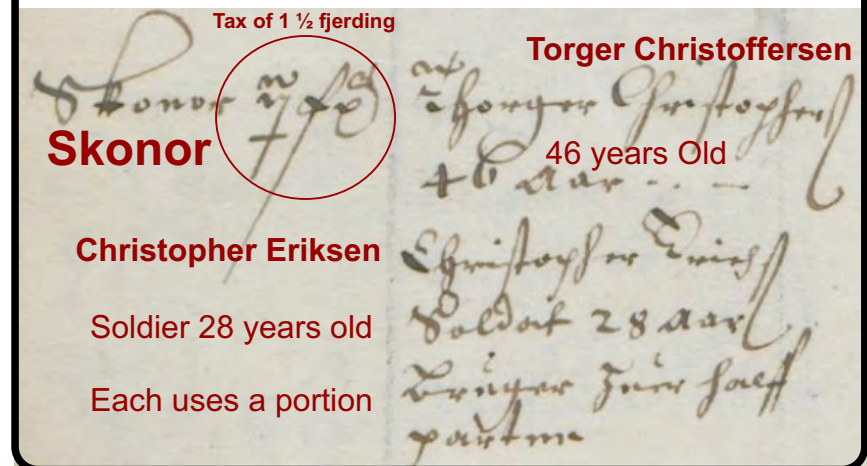 Tax of 1 ½ fjerding
Torger Christoffersen
Skonor
Thorger Christophers
Skonor
46 years Old
46 aar
Christopher Eriksen
Christopher Erichs
Soldier 28 years old
Soldat 28 aar
Each uses a portion
Bruger huer halff
parten